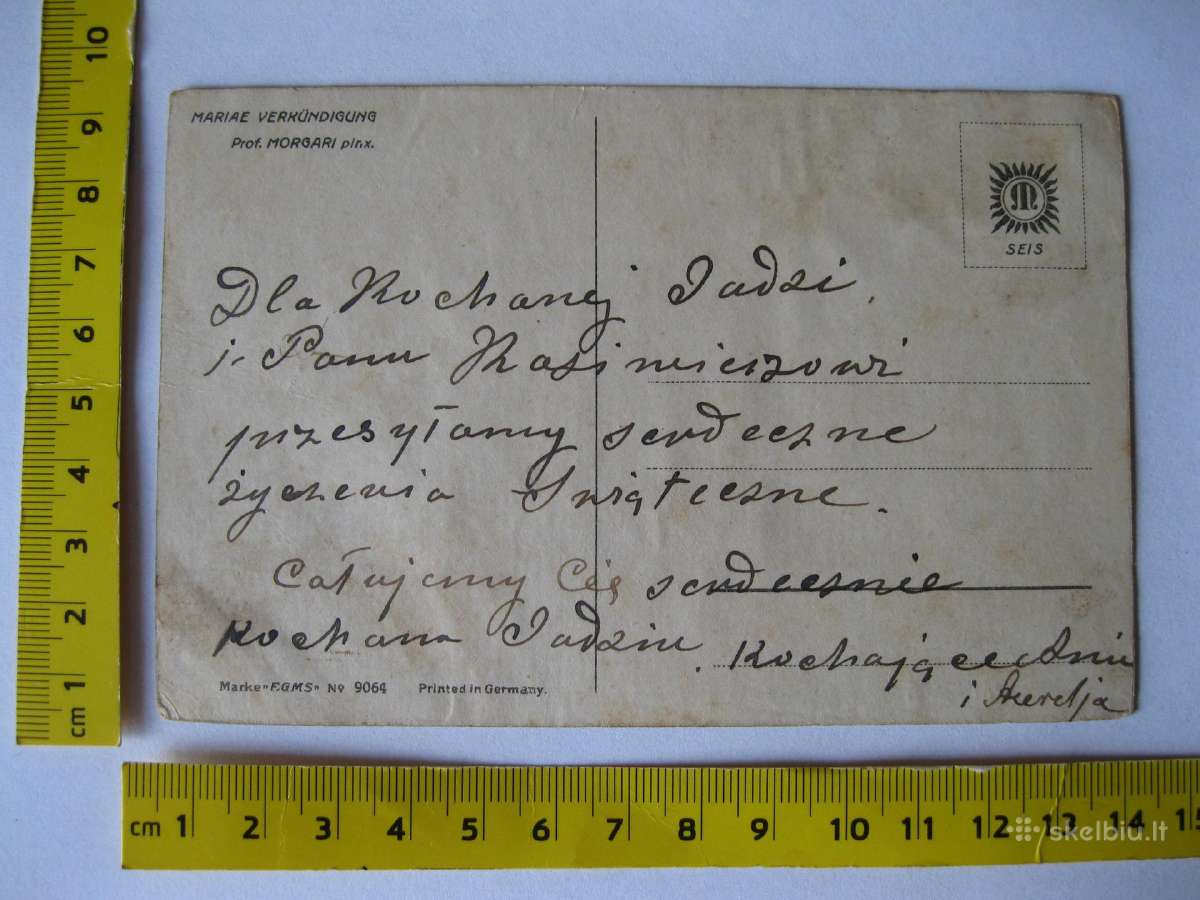 MARIAE VERKÜNDIGUNG
Prof. MORGARI pinx.
M
SEIS
Dla Kochanej Jadzi
i Panu Kazimierzowi
przesyłamy serdeczne
życzenia Swiąteczne.
Całujemy Cię serdecznie
Kochana Jadziu. Kochające
i Aurelja
Marke "F.G.M.S" No 9064 Printed in Germany.
10
9
8
7
6
5
4
3
2
1
cm
cm 1 2 3 4 5 6 7 8 9 10 11 12 13 14 15
skelbiu.lt